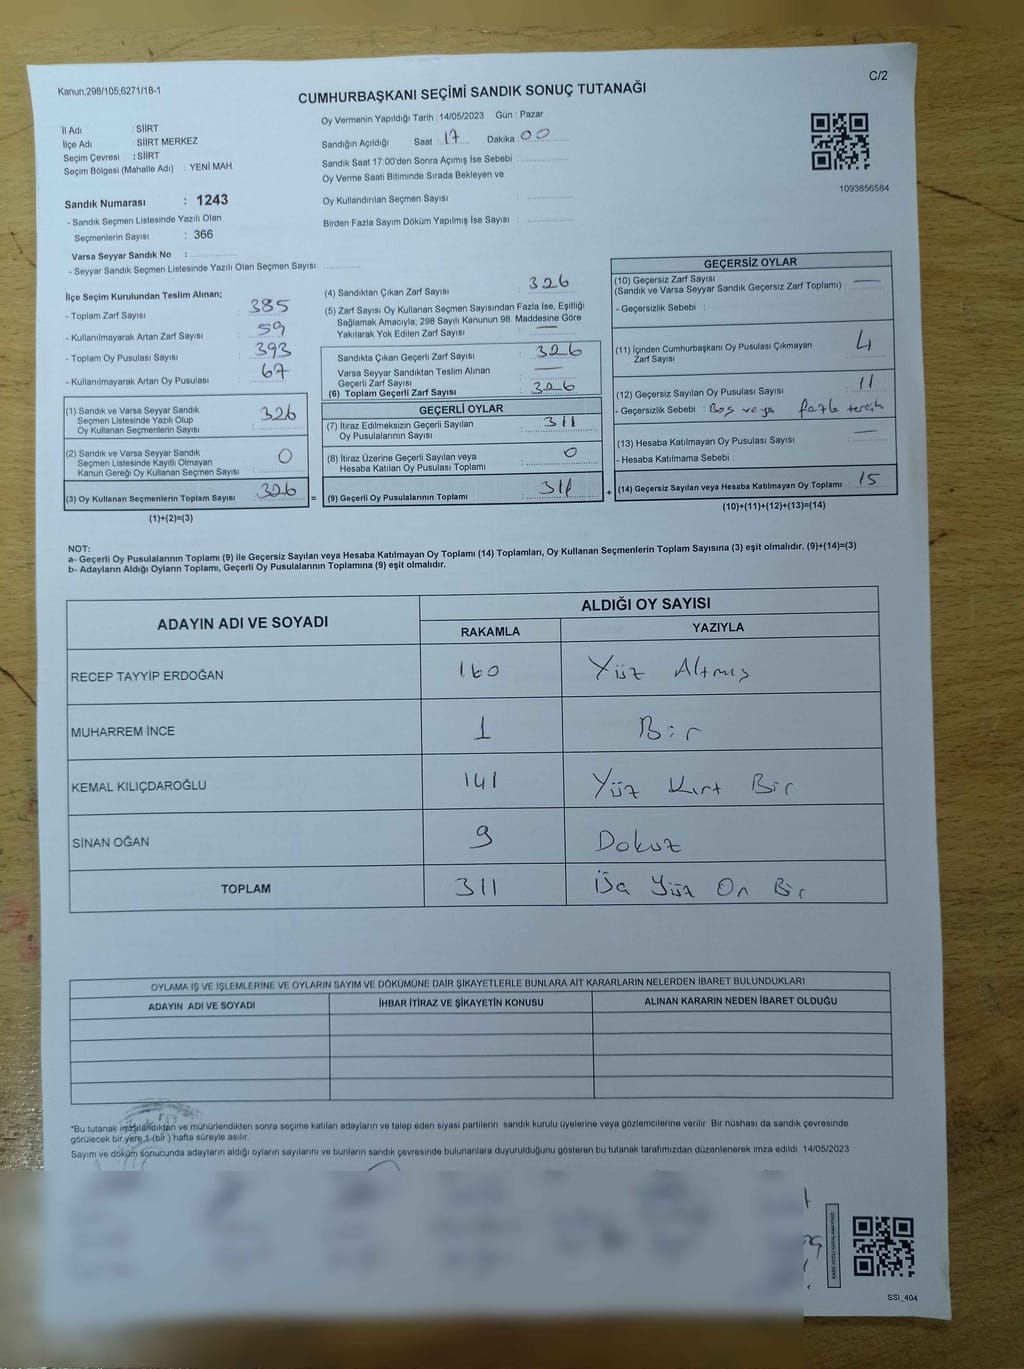 Kanun;298/105;6271/18-1
C/2
CUMHURBAŞKANI SEÇİMİ SANDIK SONUÇ TUTANAĞI
İl Adı : SİİRT
İlçe Adı : SİİRT MERKEZ
Seçim Çevresi : SİİRT
Seçim Bölgesi (Mahalle Adı) : YENİ MAH.
Oy Vermenin Yapıldığı Tarih : 14/05/2023 Gün : Pazar
Sandığın Açıldığı Saat : 17 Dakika : 00
Sandık Saat 17:00'den Sonra Açımış İse Sebebi :
Oy Verme Saati Bitiminde Sırada Bekleyen ve
Oy Kullandırılan Seçmen Sayısı :
Birden Fazla Sayım Döküm Yapılmış İse Sayısı :
1093856584
Sandık Numarası : 1243
- Sandık Seçmen Listesinde Yazılı Olan
Seçmenlerin Sayısı : 366
Varsa Seyyar Sandık No :
- Seyyar Sandık Seçmen Listesinde Yazılı Olan Seçmen Sayısı:
İlçe Seçim Kurulundan Teslim Alınan;
- Toplam Zarf Sayısı : 385
- Kullanılmayarak Artan Zarf Sayısı : 59
- Toplam Oy Pusulası Sayısı : 393
- Kullanılmayarak Artan Oy Pusulası : 67
(1) Sandık ve Varsa Seyyar Sandık
Seçmen Listesinde Yazılı Olup
Oy Kullanan Seçmenlerin Sayısı : 326
(2) Sandık ve Varsa Seyyar Sandık
Seçmen Listesinde Kayıtlı Olmayan
Kanun Gereği Oy Kullanan Seçmen Sayısı : 0
(3) Oy Kullanan Seçmenlerin Toplam Sayısı : 326
(1)+(2)=(3)
=
(4) Sandıktan Çıkan Zarf Sayısı : 326
(5) Zarf Sayısı Oy Kullanan Seçmen Sayısından Fazla İse, Eşitliği
Sağlamak Amacıyla; 298 Sayılı Kanunun 98. Maddesine Göre
Yakılarak Yok Edilen Zarf Sayısı : —
Sandıkta Çıkan Geçerli Zarf Sayısı : 326
Varsa Seyyar Sandıktan Teslim Alınan
Geçerli Zarf Sayısı : —
(6) Toplam Geçerli Zarf Sayısı : 326
GEÇERLİ OYLAR
(7) İtiraz Edilmeksizin Geçerli Sayılan
Oy Pusulalarının Sayısı : 311
(8) İtiraz Üzerine Geçerli Sayılan veya
Hesaba Katılan Oy Pusulası Toplamı : 0
(9) Geçerli Oy Pusulalarının Toplamı : 311
+
GEÇERSİZ OYLAR
(10) Geçersiz Zarf Sayısı
(Sandık ve Varsa Seyyar Sandık Geçersiz Zarf Toplamı) : —
- Geçersizlik Sebebi :
(11) İçinden Cumhurbaşkanı Oy Pusulası Çıkmayan
Zarf Sayısı : 4
(12) Geçersiz Sayılan Oy Pusulası Sayısı : 11
- Geçersizlik Sebebi : Boş veya fazla tercih
(13) Hesaba Katılmayan Oy Pusulası Sayısı : —
- Hesaba Katılmama Sebebi :
(14) Geçersiz Sayılan veya Hesaba Katılmayan Oy Toplamı : 15
(10)+(11)+(12)+(13)=(14)
NOT:
a- Geçerli Oy Pusulalarının Toplamı (9) ile Geçersiz Sayılan veya Hesaba Katılmayan Oy Toplamı (14) Toplamları, Oy Kullanan Seçmenlerin Toplam Sayısına (3) eşit olmalıdır. (9)+(14)=(3)
b- Adayların Aldığı Oyların Toplamı, Geçerli Oy Pusulalarının Toplamına (9) eşit olmalıdır.
ADAYIN ADI VE SOYADI
ALDIĞI OY SAYISI
RAKAMLA YAZIYLA
RECEP TAYYİP ERDOĞAN 160 Yüz Altmış
MUHARREM İNCE 1 Bir
KEMAL KILIÇDAROĞLU 141 Yüz Kırt Bir
SİNAN OĞAN 9 Dokuz
TOPLAM 311 Yüz On Bir
OYLAMA İŞ VE İŞLEMLERİNE VE OYLARIN SAYIM VE DÖKÜMÜNE DAİR ŞİKAYETLERLE BUNLARA AİT KARARLARIN NELERDEN İBARET BULUNDUKLARI
ADAYIN ADI VE SOYADI İHBAR İTİRAZ VE ŞİKAYETİN KONUSU ALINAN KARARIN NEDEN İBARET OLDUĞU
*Bu tutanak imzalandıktan ve mühürlendikten sonra seçime katılan adayların ve talep eden siyasi partilerin sandık kurulu üyelerine veya gözlemcilerine verilir. Bir nüshası da sandık çevresinde
görülecek bir yere 1 (bir ) hafta süreyle asılır.
Sayım ve döküm sonucunda adayların aldığı oyların sayılarını ve bunların sandık çevresinde bulunanlara duyurulduğunu gösteren bu tutanak tarafımızdan düzenlenerek imza edildi. 14/05/2023
SSI_404